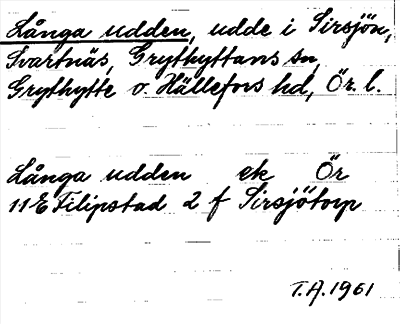 Långa udden, udde i Sirsjön,
Svartnäs, Grythyttans sn,
Grythytte o. Hällefors hd, Ör. l.
Långa udden ek Ör
11E Filipstad 2 f Sirsjötorp
T.A. 1961